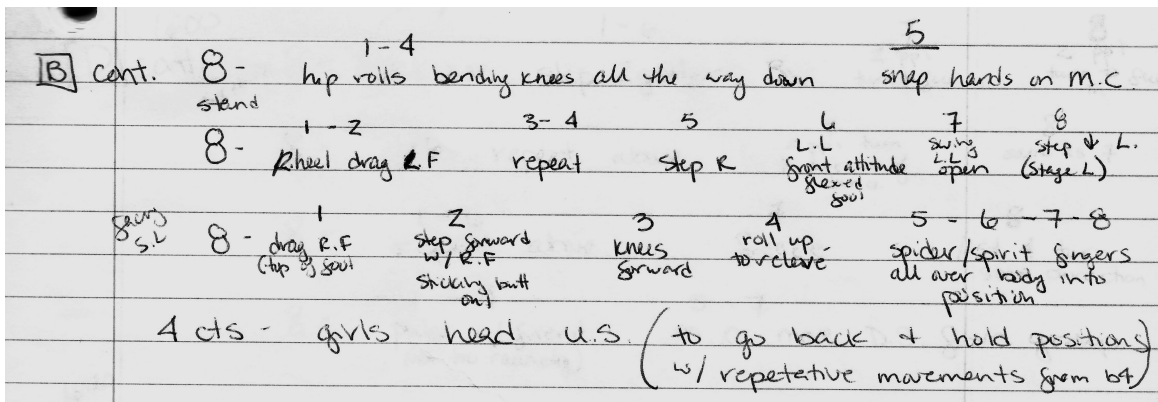 1-4 5
B cont. 8- hip rolls bending knees all the way down snap hands on m.c.
stand
1-2 3-4 5 6 7 8
8- R.heel drag R F repeat step R L.L front attitude flexed foot swing L.L open step ↓ L. (stage L)
facing S.L
1 2 3 4 5-6-7-8
8- drag R.F (top of foot step forward w/ R.F sticking butt out) knees forward roll up to releve spider/spirit fingers all over body into position
4 cts - girls head u.s. (to go back & hold positions
w/ repetative movements from b4)